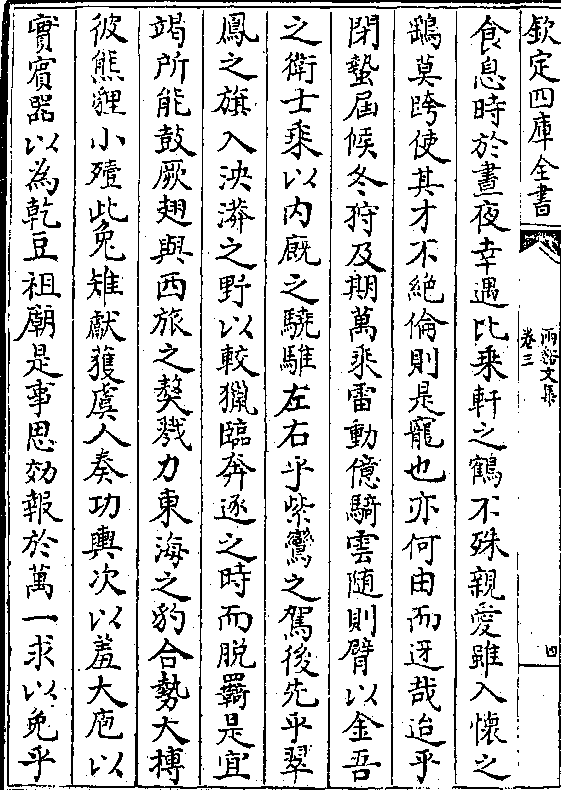 欽定四庫全書
兩谿文集
卷三
四
食息時於晝夜幸遇比乘軒之鶴不殊親愛雖入懷之
鷂莫跨使其才不絶倫則是寵也亦何由而迓哉迨乎
閉蟄届候冬狩及期萬乘雷動億騎雲随則臂以金吾
之衛士乘以内廐之驍騅左右乎紫鸞之駕後先乎翠
鳳之旗入泱漭之野以較獵臨奔逐之時而脱羈是宜
竭所能鼓厥翅與西旅之獒戮力東海之豹合勢大摶
彼熊貍小殪此兔雉獻獲虞人奏功輿次以羞大庖以
實賓器以為乾豆祖廟是事思効報於萬一求以免乎